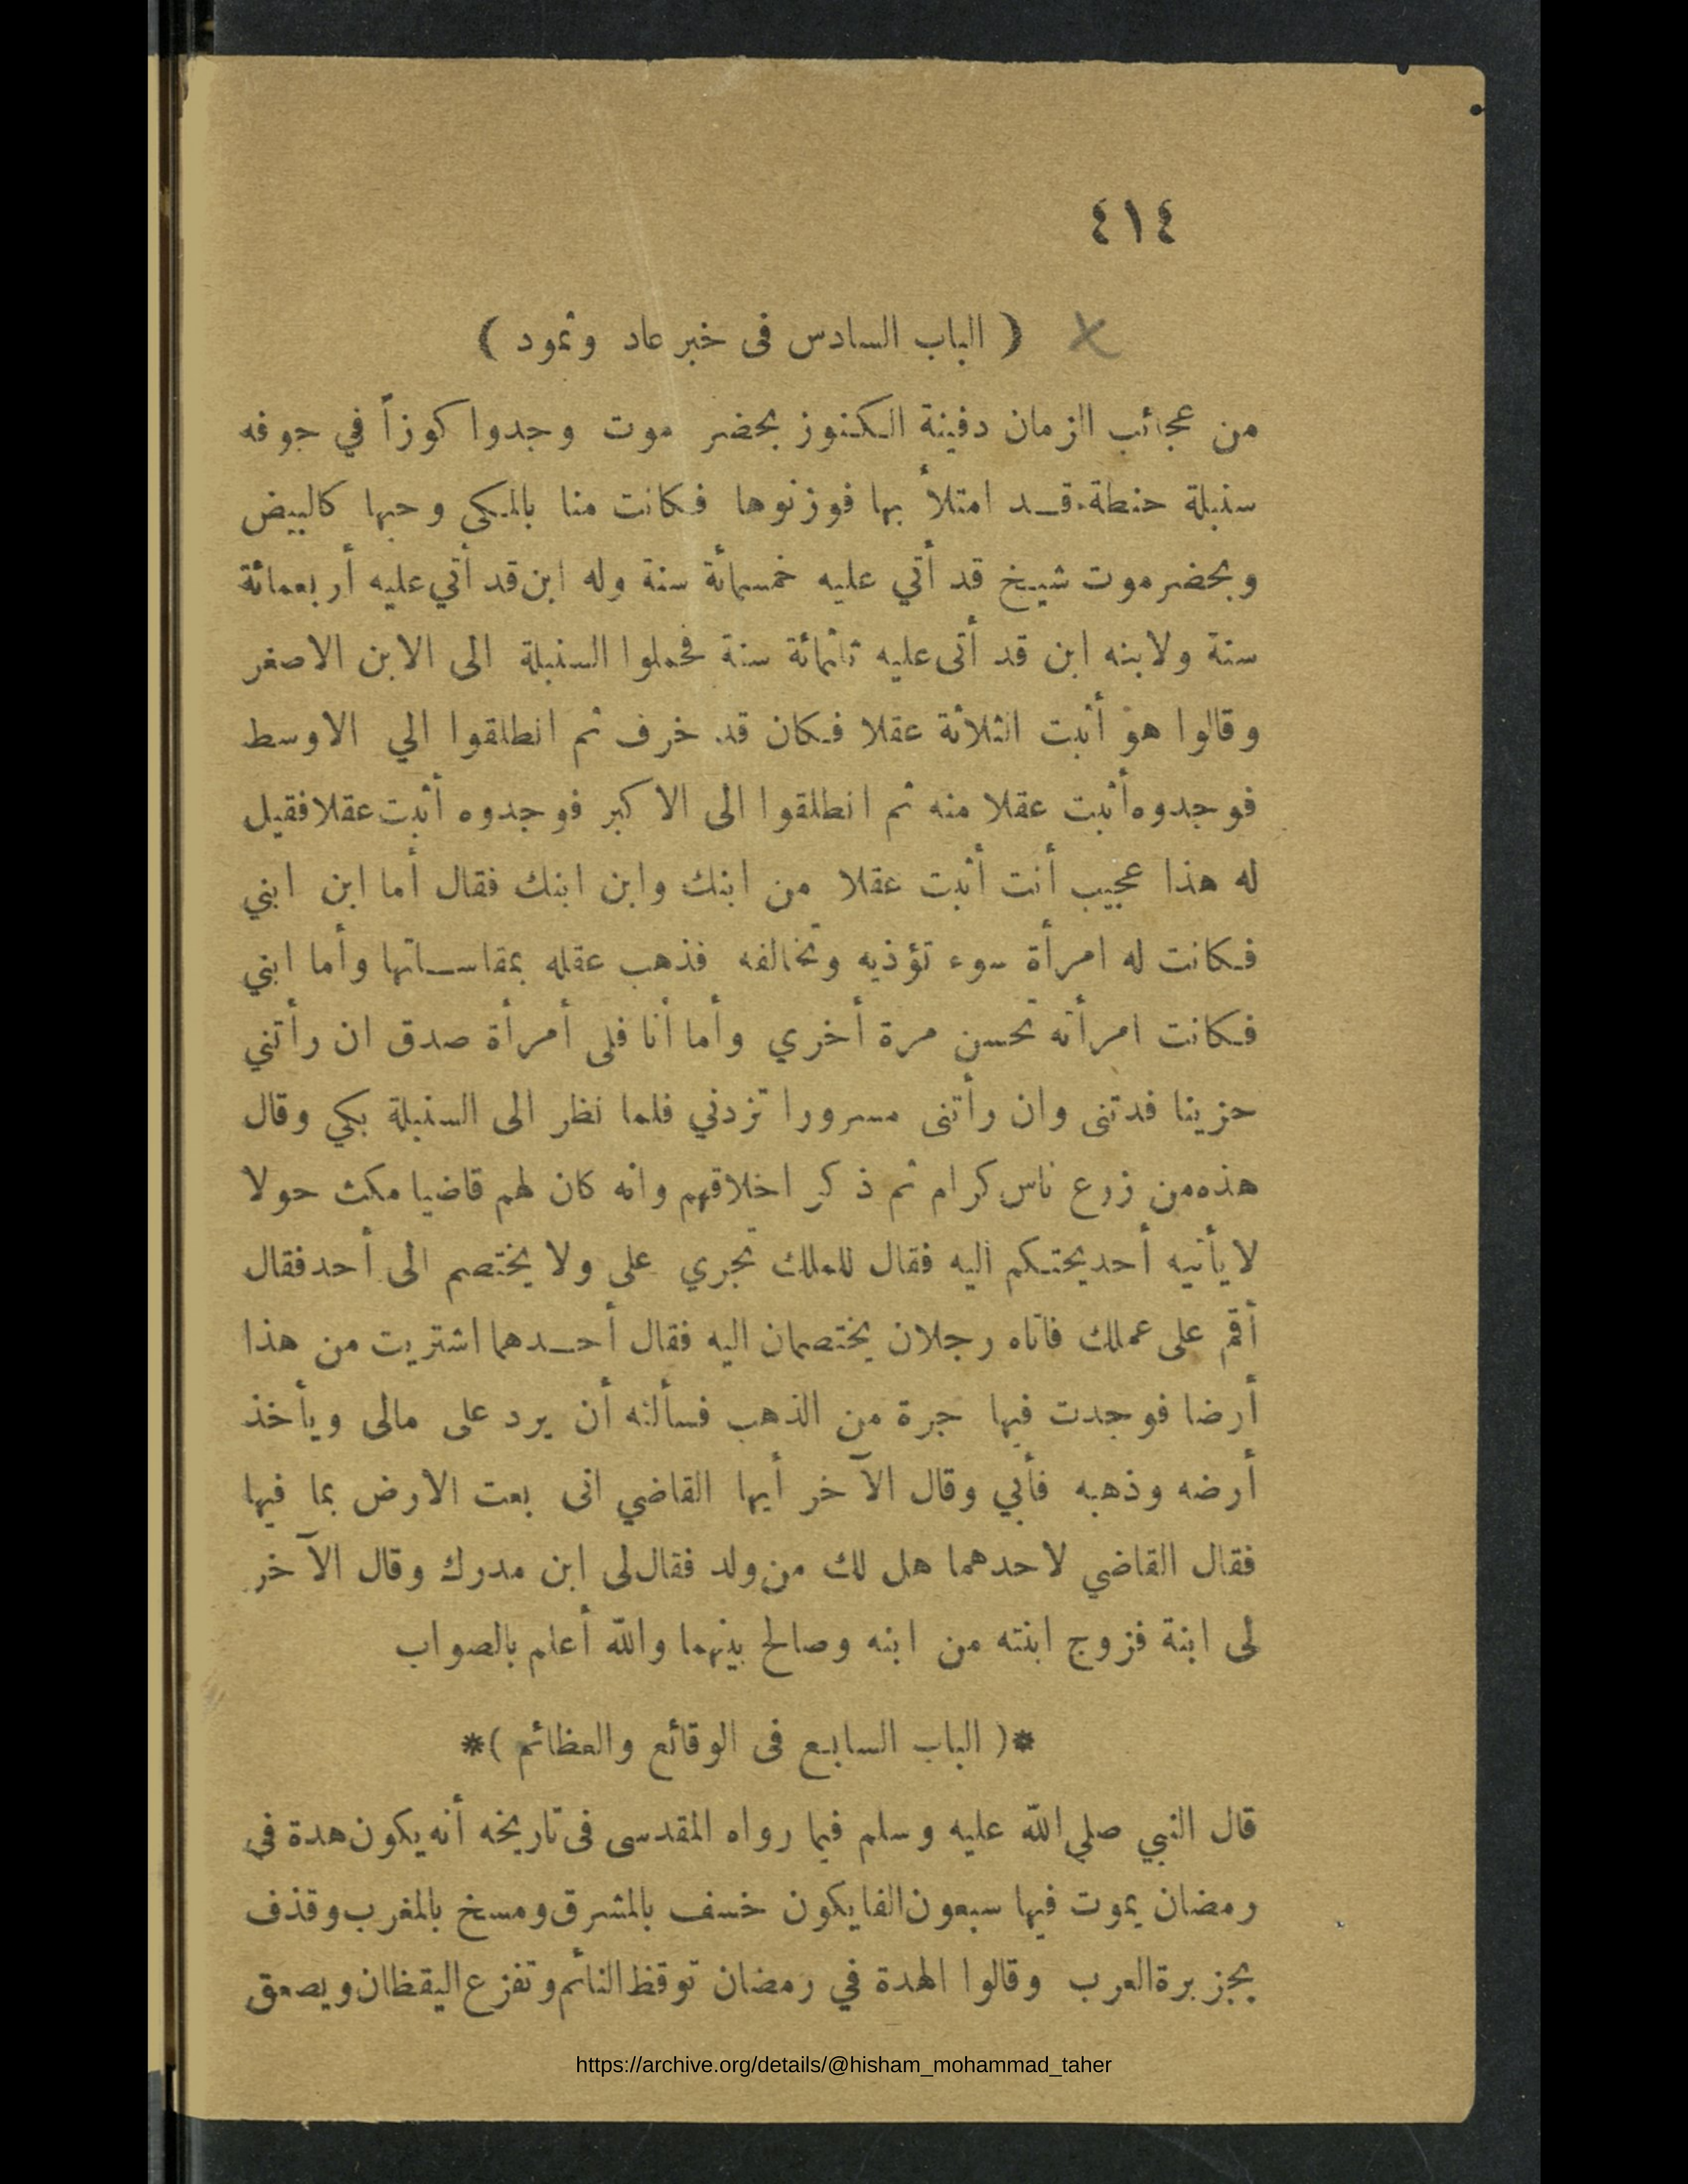 ٤١٤
( الباب السادس فى خبر عاد وثمود )
من عجائب الزمان دفينة الكنوز بحضر موت وجدوا كوزاً في جوفه
سنبلة حنطة قد امتلأ بها فوزنوها فكانت منا بالمكي وحبها كالبيض
وبحضرموت شيخ قد أتي عليه خمسمائة سنة وله ابن قد أتي عليه أربعمائة
سنة ولابنه ابن قد أتى عليه ثلثمائة سنة فحملوا السنبلة الى الابن الاصغر
وقالوا هو أثبت الثلاثة عقلا فكان قد خرف ثم انطلقوا الي الاوسط
فوجدوه أثبت عقلا منه ثم انطلقوا الى الاكبر فوجدوه أثبت عقلا فقيل
له هذا عجيب أنت أثبت عقلا من ابنك وابن ابنك فقال أما ابن ابني
فكانت له امرأة سوء تؤذيه وتخالفه فذهب عقله بمقاساتها وأما ابني
فكانت امرأته تحسن مرة أخري وأما أنا فلى أمرأة صدق ان رأتني
حزينا فدتنى وان رأتنى مسرورا تزدني فلما نظر الى السنبلة بكي وقال
هذه من زرع ناس كرام ثم ذكر اخلاقهم وانه كان لهم قاضيا مكث حولا
لا يأتيه أحد يحتكم اليه فقال للملك تجري على ولا يختصم الى أحد فقال
أقم على عملك فاتاه رجلان يختصمان اليه فقال أحدهما اشتريت من هذا
أرضا فوجدت فيها جرة من الذهب فسألته أن يرد على مالى ويأخذ
أرضه وذهبه فأبي وقال الآخر أيها القاضي انى بعت الارض بما فيها
فقال القاضي لاحدهما هل لك من ولد فقال لى ابن مدرك وقال الآخر
لى ابنة فزوج ابنته من ابنه وصالح بينهما والله أعلم بالصواب
*( الباب السابع فى الوقائع والعظائم )*
قال النبي صلي الله عليه وسلم فيما رواه المقدسى فى تاريخه أنه يكون هدة في
رمضان يموت فيها سبعون الفا يكون خسف بالمشرق ومسخ بالمغرب وقذف
بجزيرة العرب وقالوا الهدة في رمضان توقظ النائم وتفزع اليقظان ويصعق
https://archive.org/details/@hisham_mohammad_taher